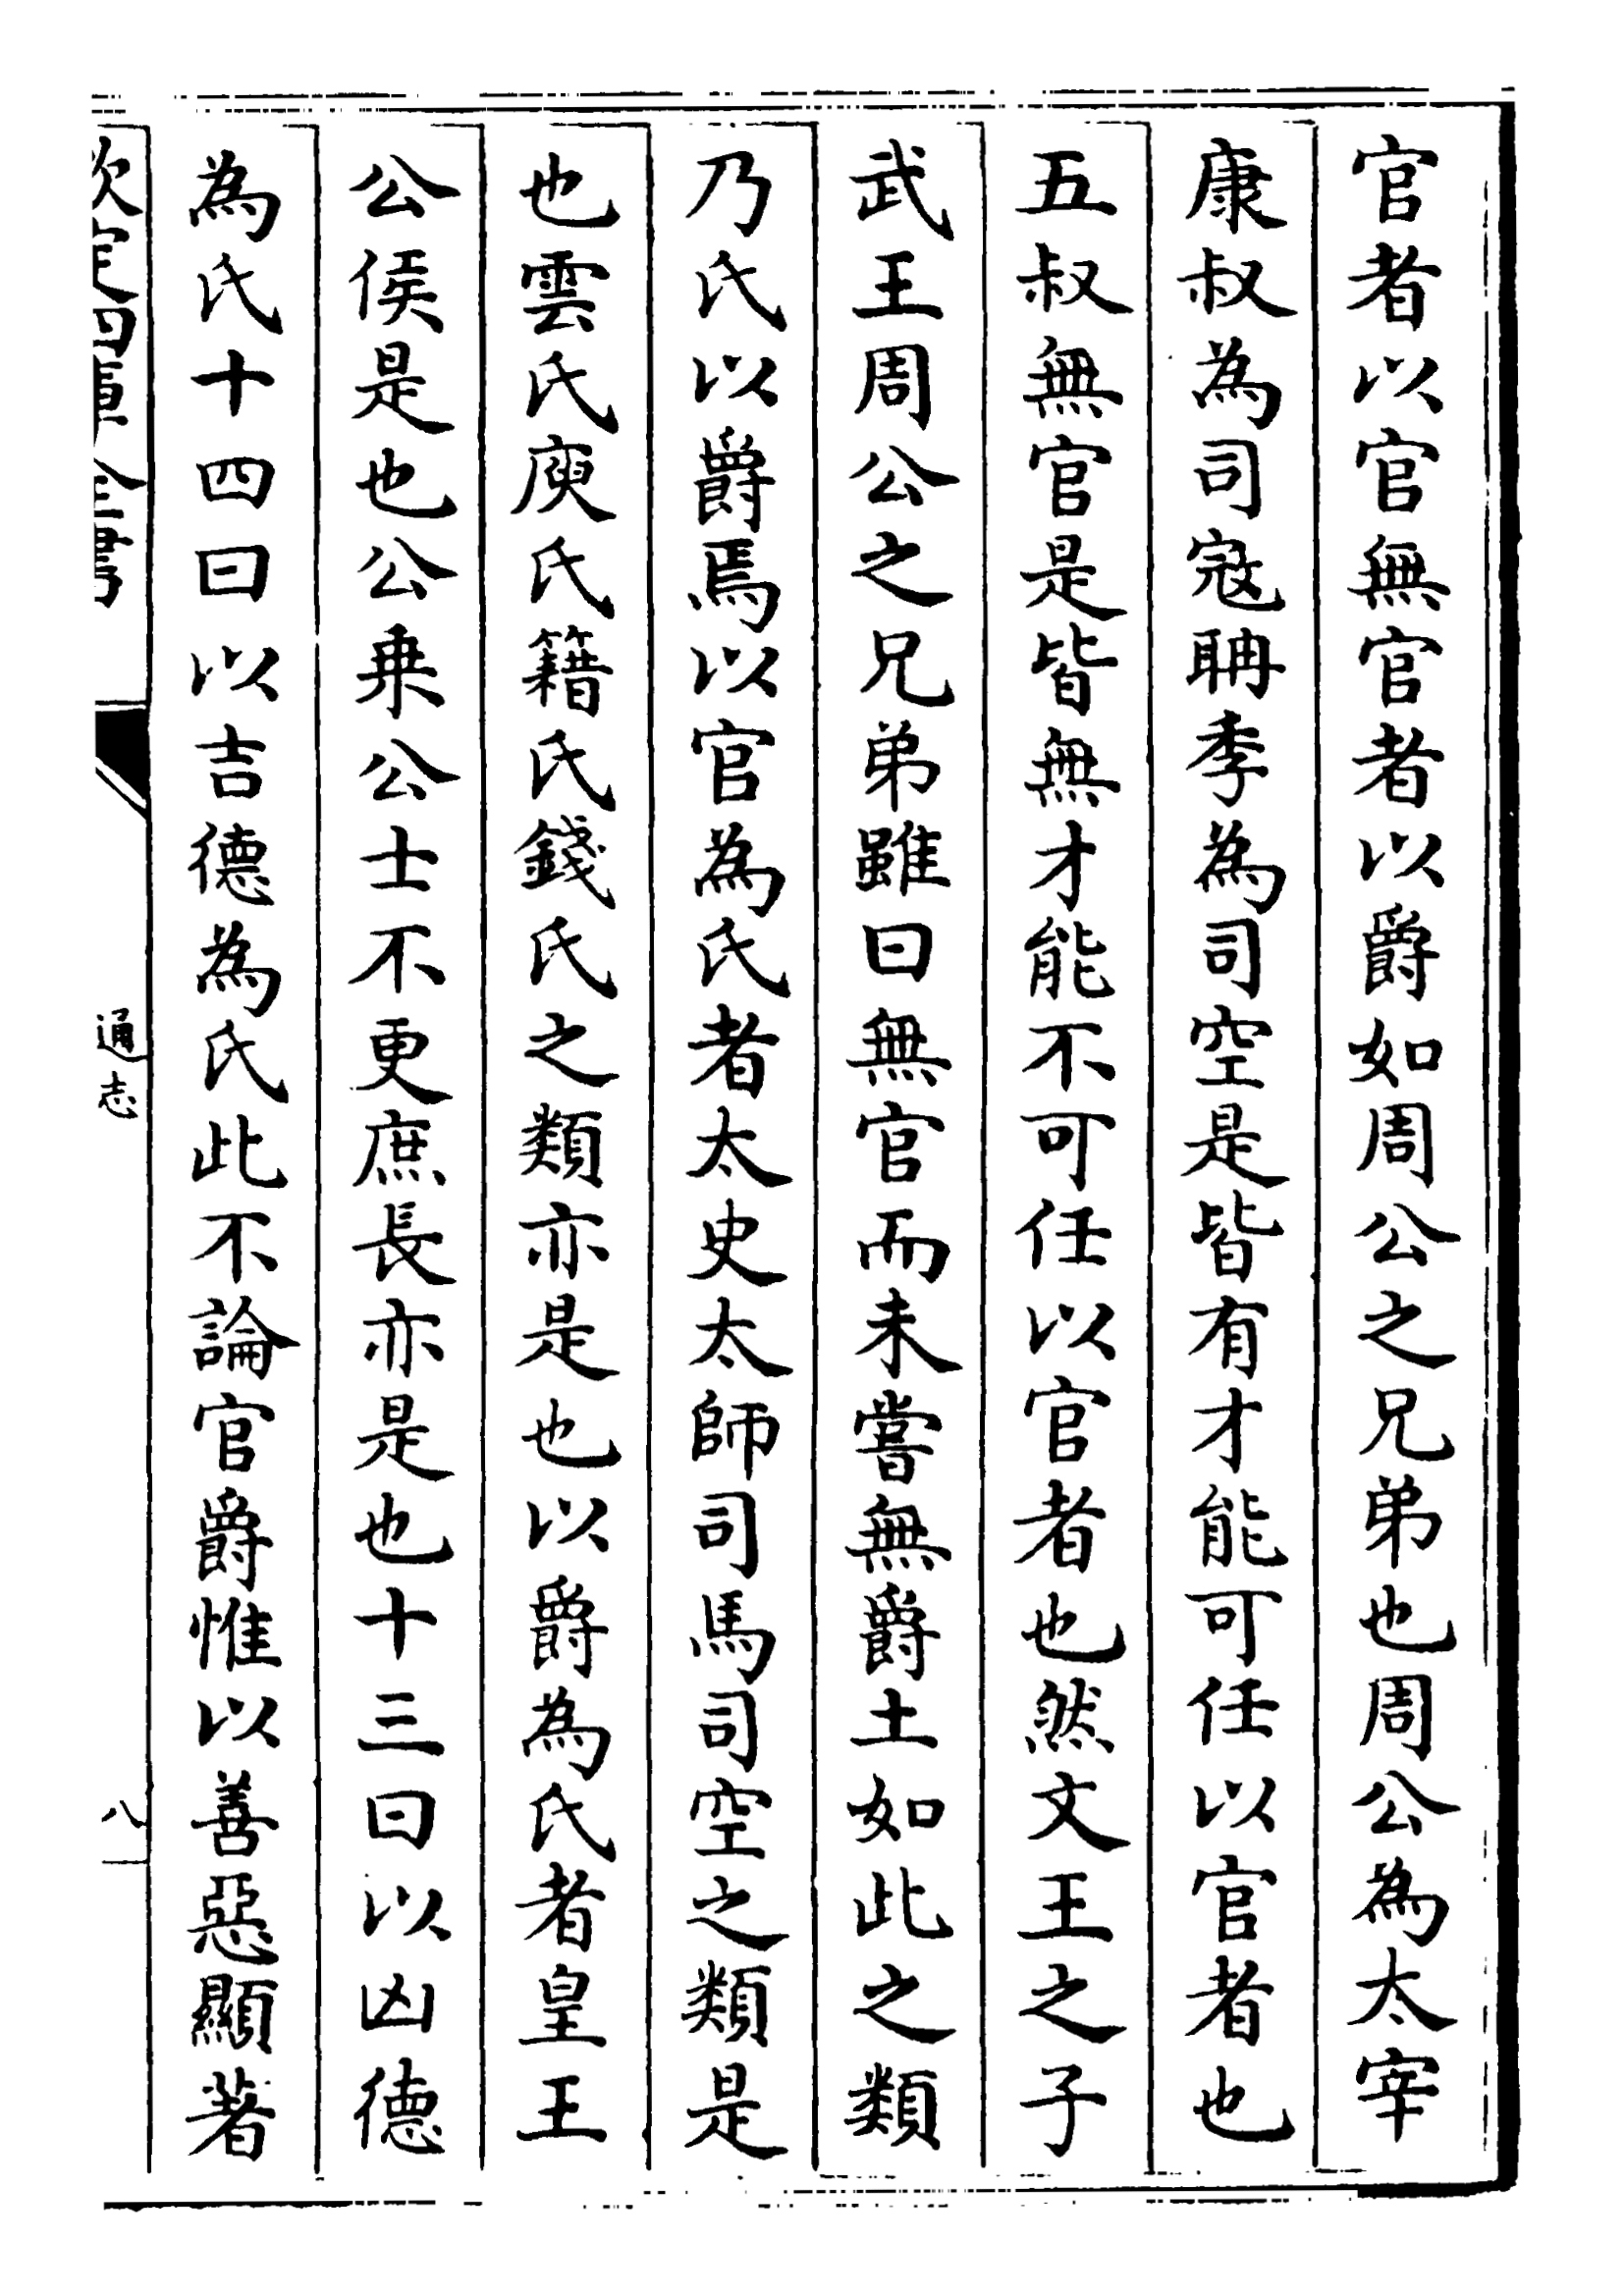 官者以官無官者以爵如周公之兄弟也周公為太宰
康叔為司寇聃季為司空是皆有才能可任以官者也
五叔無官是皆無才能不可任以官者也然文王之子
武王周公之兄弟雖曰無官而未嘗無爵土如此之類
乃氏以爵焉以官為氏者太史太師司馬司空之類是
也雲氏庾氏籍氏錢氏之類亦是也以爵為氏者皇王
公侯是也公乗公士不更庶長亦是也十三曰以凶德
為氏十四曰以吉德為氏此不論官爵惟以善惡顯著
欽定四庫全書
通志
八